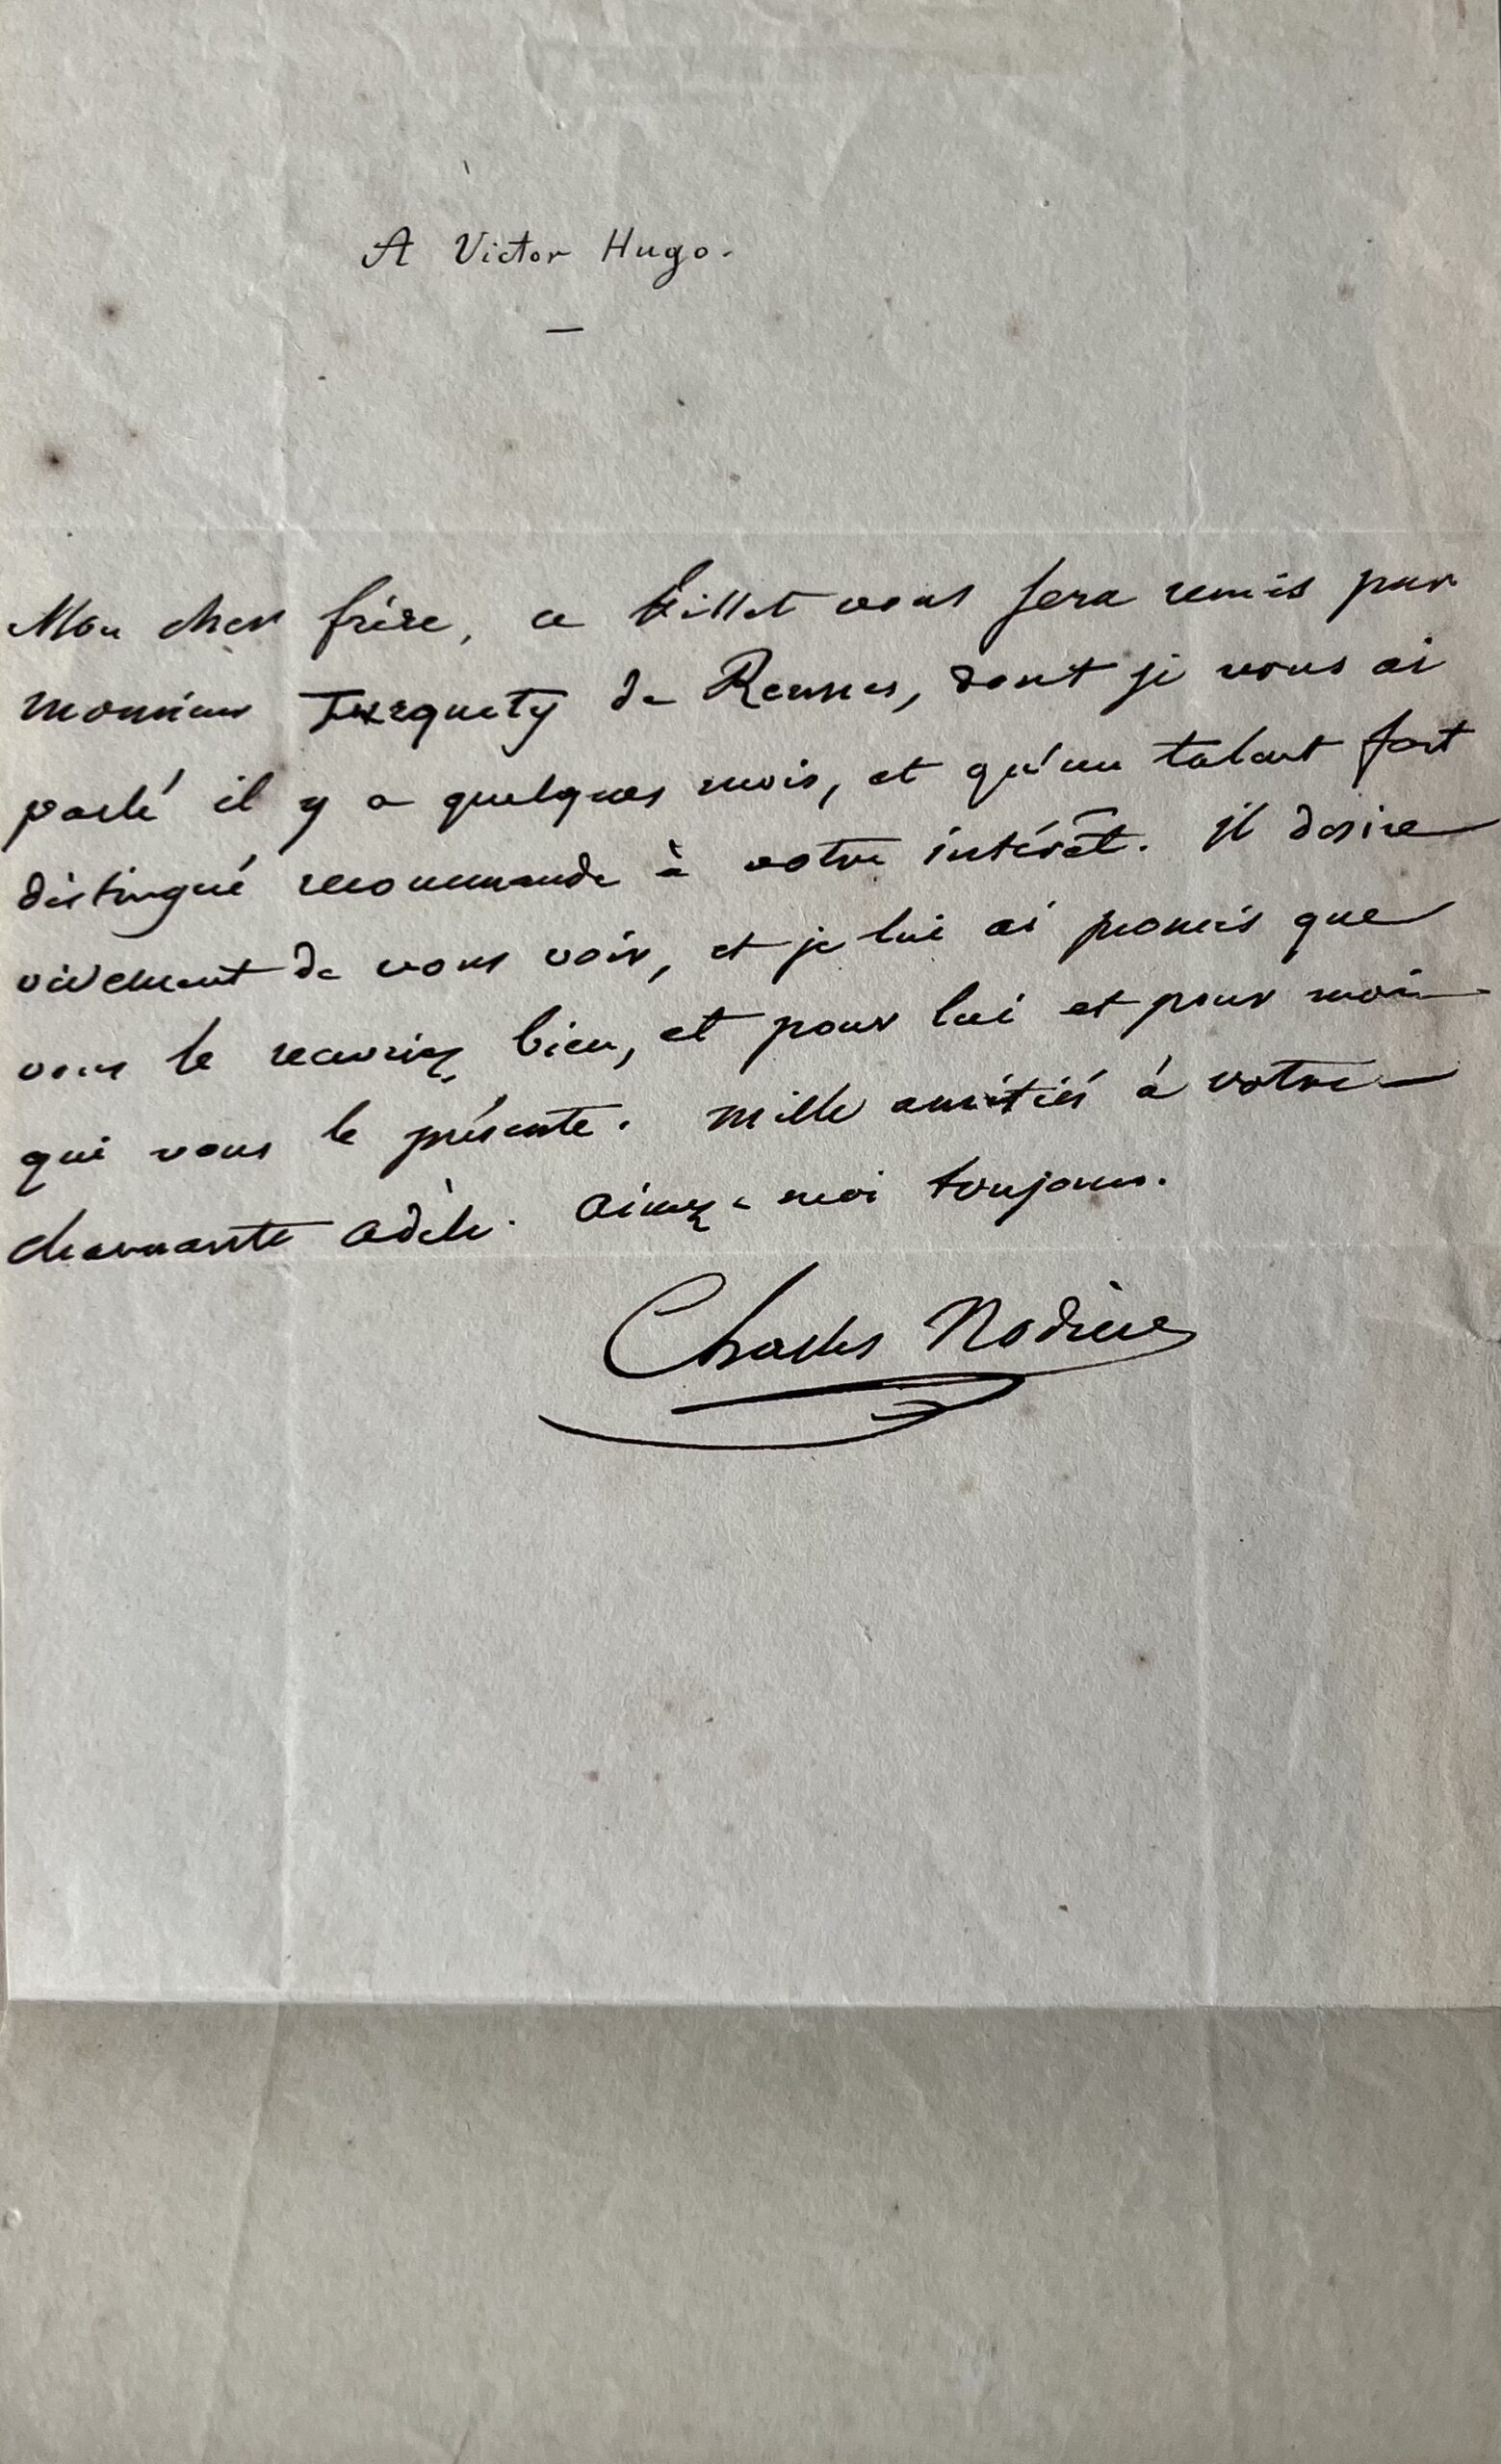 A Victor Hugo.
—
Mon cher frère, ce billet vous sera remis par
monsieur Turquety de Rennes, dont je vous ai
parlé il y a quelques mois, et qu'un talent fort
distingué recommande à votre intérêt. Il désire
vivement de vous voir, et je lui ai promis que
vous le recevriez bien, et pour lui et pour moi
qui vous le présente. Mille amitiés à votre
charmante adèle. Aimez-moi toujours.
Charles Nodier